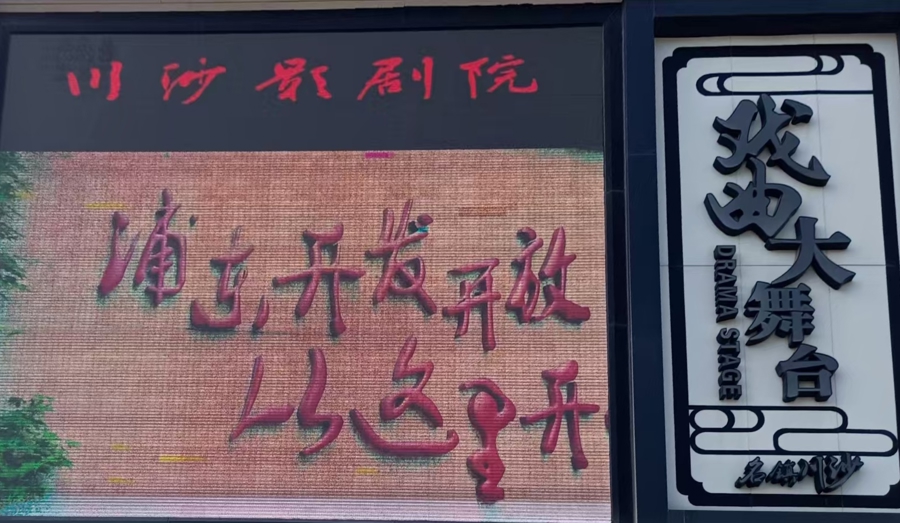 川沙影剧院
浦东开发开放
从这里开
戏曲大舞台
DRAMA STAGE
名镇川沙